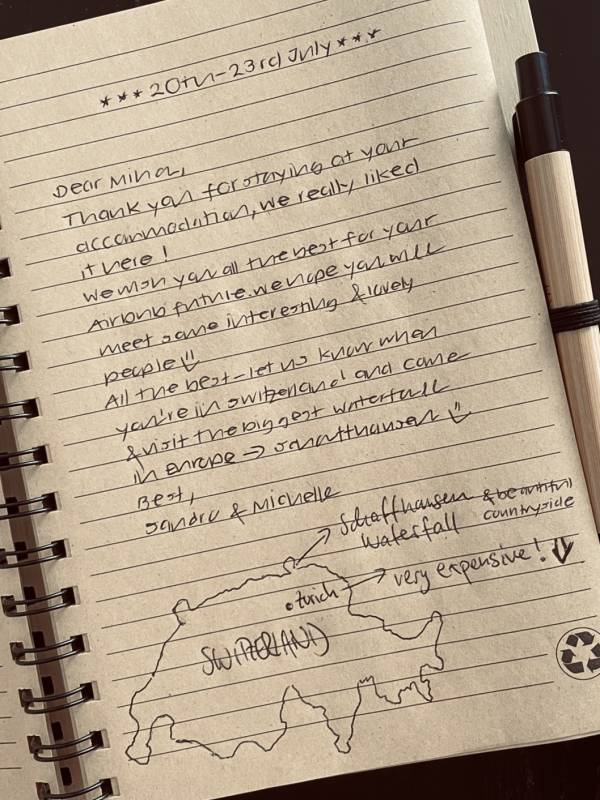 *** 20th-23rd July ***
Dear Mina,
Thank you for staying at your
accommodation, we really liked
it here!
We wish you all the best for your
Airbnb future. We hope you will
meet some interesting & lovely
people
All the best - let us know when
you're in Switzerland and come
& visit the biggest waterfall
in Europe → Schaffhausen
Best,
Sandro & Michelle
Schaffhausen & beautiful
Waterfall countryside
Zurich → very expensive!
SWITZERLAND